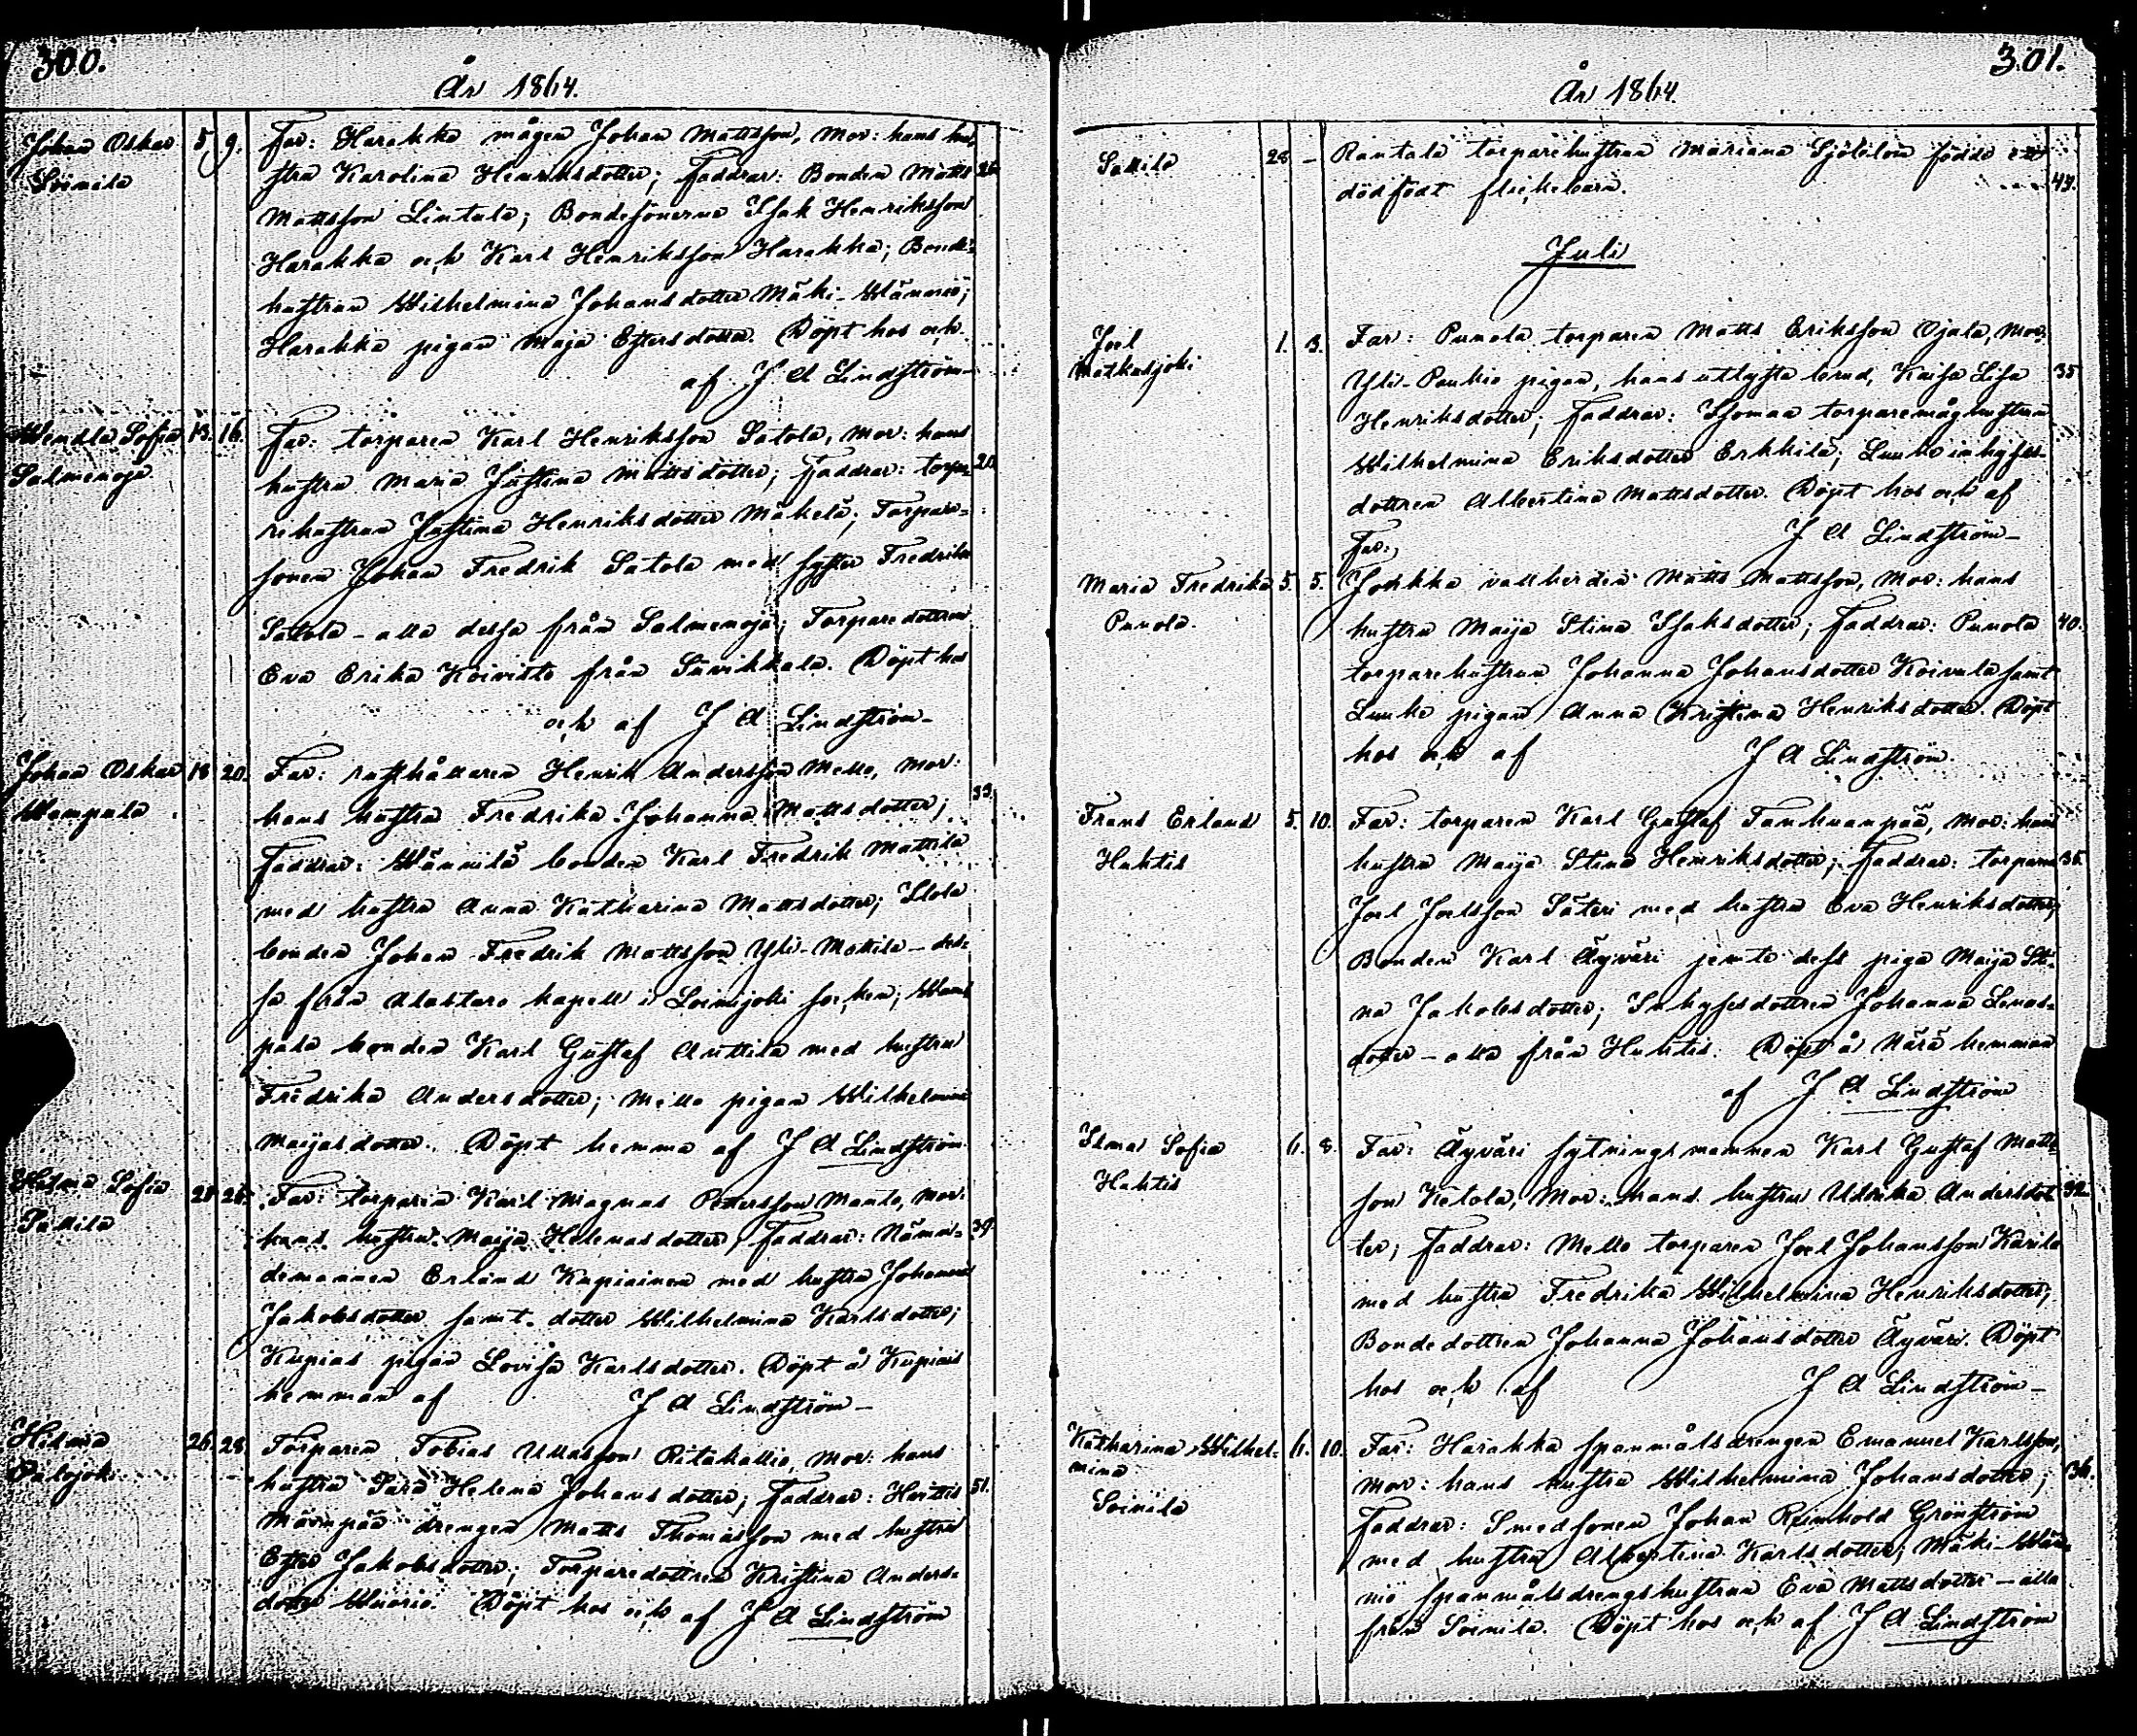 300.
År 1864.
Johan Oskar 5 9. Far: Harakka mågen Johan Mattsson, Mor: hans hu-
Soinila stru Karolina Henriksdotter; Faddrar: Bonden Matts
Mattsson Lintula; Bondesönerna Isak Henriksson
Harakka och Karl Henriksson Harakka; Bonde-
hustrun Wilhelmina Johansdotter Mäki-Wänniö;
Harakka pigan Maja Estersdotter. Döpt hos och
af J A Lindström
Wendla Sofia 13. 16. Far: torparen Karl Henriksson Satola, Mor: hans
Salmenoja hustru Maria Justina Mattsdotter; Faddrar: torpa- 20.
rehustrun Justina Henriksdotter Mäkelä; Torpare-
sonen Johan Fredrik Satola med syster Fredrika
Satola - alla dessa från Salmenoja; Torparedottren
Eva Erika Koivisto från Suvikkala. Döpt hos
och af J A Lindström
Johan Oskar 18 20. Far: rusthållaren Henrik Andersson Mello, Mor:
Wampula hans hustru Fredrika Johanna Mattsdotter; 33.
Faddrar: Männilä bonden Karl Fredrik Mattila
med hustru Anna Katharina Mattsdotter;
bonden Johan Fredrik Mattsson Yli-Mattila - des-
sa från Alastaro kapell i Loimijoki socken; Wam-
pula bonden Karl Gustaf Anttila med hustru
Fredrika Andersdotter; Mello pigan Wilhelmina
Maijasdotter. Döpt hemma af J A Lindström
Helma Sofia 25. Far: torparen Karl Magnus Pettersson Manto, Mor:
hans hustru Maija Helenasdotter; Faddrar: Näm- 39.
demannen Erland Kupiainen med hustru Johanna
Jakobsdotter samt dotter Wilhelmina Karlsdotter;
Kupias pigan Lovisa Karlsdotter. Döpt å Kupiais
hemman af J A Lindström
Hilma 26. 28. Torparen Tobias Ritakallio, Mor: hans
Palojoki hustru Sara Helena Johansdotter; Faddrar: 51.
drengen Matts Thomasson med hustru
Ester Jakobsdotter; Torparedottren Kristina Anders-
dotter Wuorio. Döpt hos och af J A Lindström
301.
År 1864.
28 - Rantala torparehustrun Mariana Sjöblom födde ett
dödfödt flickebarn. 44.
Juli
Joel 1. 3. Far: Punola torparen Matts Eriksson Ojala, Mor:
Matkusjoki Yli-Paukio pigan, hans utlysta brud, Kaisa Lisa 35
Henriksdotter; Faddrar: torparemåghustrun
Wilhelmina Eriksdotter Erkkilä; inhyses-
dottren Albertina Mattsdotter. Döpt hos och af
J A Lindström
Far:
Maria Fredrika 5. 5. Jokkka vallherden Matts Mattsson, Mor: hans
Punola. hustru Maija Stina Isaksdotter; Faddrar: Punola 40.
torparehustrun Johanna Johansdotter Koivula samt
pigan Anna Kristina Henriksdotter. Döpt
hos och af J A Lindström.
Frans Erland 5. 10. Far: torparen Karl Gustaf Tanhuanpää, Mor: hans
Huhtis hustru Maija Stina Henriksdotter; Faddrar: torparen 35.
Joel Joelsson Säteri med hustru Eva Henriksdotter;
Bonden Karl Äyväri jemte dess piga Maija Sti-
na Jakobsdotter; Inhysesdottren Johanna Lenas-
dotter - alla från Huhtis. Döpt å Närä hemman
af J A Lindström
Ilma Sofia 6. 8. Far: Äyväri sytningsmannen Karl Gustaf Matts-
Huhtis son Ketola, Mor: hans hustru Ulrika Andersdot- 32.
ter; Faddrar: Mello torparen Joel Johansson Karila
med hustru Fredrika Wilhelmina Henriksdotter;
Bondedottren Johanna Johansdotter Äyväri. Döpt
hos och af J A Lindström
Katharina Wilhel- 6. 10. Far: Harakka spanmålsdrengen Emanuel Karlsson,
mina Mor: hans hustru Wilhelmina Johansdotter; 36.
Soinila Faddrar: Smedsonen Johan Reinhold Grönström
med hustru Albertina Karlsdotter; Mäki-Wän-
niö spanmålsdrengshustrun Eva Mattsdotter - alla
från Soinila. Döpt hos och af J A Lindström